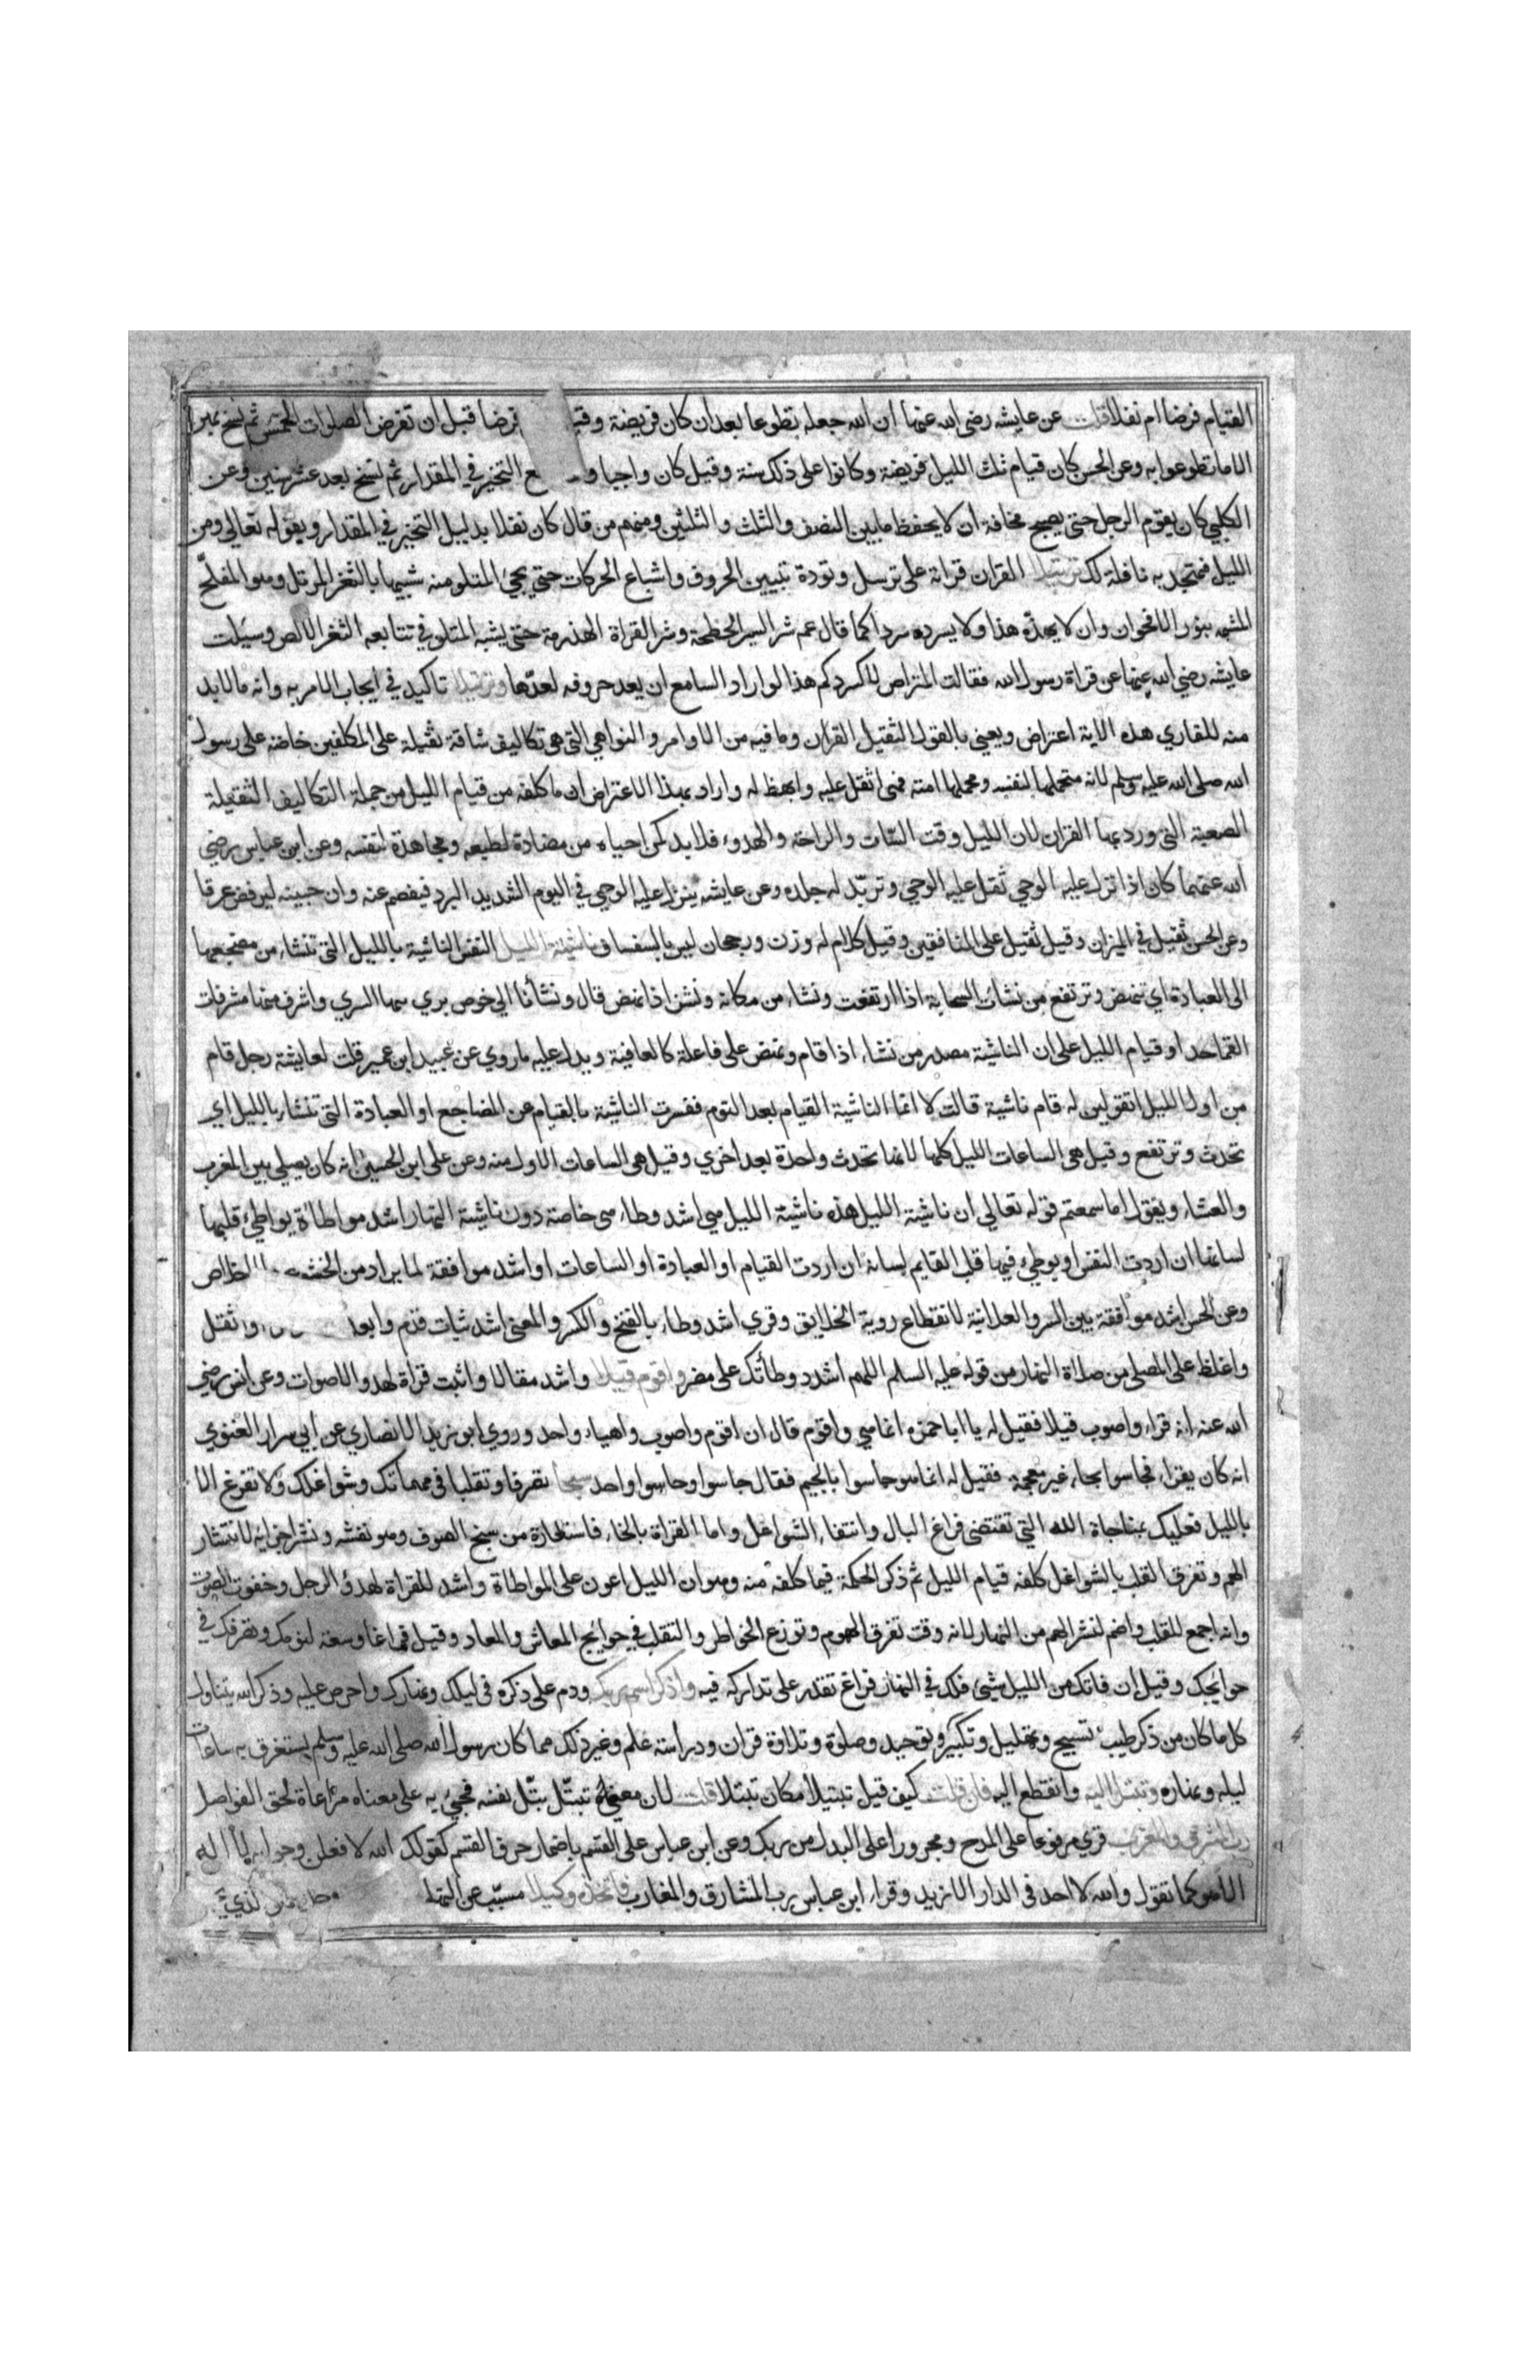 القيام فرضا ام نفلا قلت عن عايشه رضى الله عنها ان الله جعله تطوعا بعد ان كان فريضة وقيل فرضا قبل ان تفرض الصلوات الخمس ثم نسخ بهن
الا ما تطوعوا به وعن الحسن كان قيام ثلث الليل فريضة وكانوا على ذلك سنة وقيل كان واجبا و ع التخيير في المقدار ثم نسخ بعد عشر سنين وعن
الكلبي كان يقوم الرجل حتى يصبح مخافة ان لا يحفظ ما بين النصف والثلث والثلثين ومنهم من قال كان نفلا بدليل التخيير في المقدار وبقوله تعالى ومن
الليل فتهجد به نافلة لك ترتيلا القران قراته على ترسل وتودة تبيين الحروف واشباع الحركات حتى يجئ المتلو منه شبيها بالثغر المرتل وهو المفلج
المشبه بنور الاقحوان وان لا يهذه هذا ولا يسرده سردا كما قال عمر شر السير الحقحقة وشر القراة الهذرمة حتى يشبه المتلو في تتابعه الثغر الالص وسيلت
عايشه رضي الله عنها عن قراة رسول الله فقالت لا كسردكم هذا لو اراد السامع ان يعد حروفه لعدها وترتيلا تاكيد في ايجاب الامر به وانه مالا بد
منه للقاري هذه الاية اعتراض ويعني بالقول الثقيل القران وما فيه من الاوامر والنواهي التي هي تكاليف شاقة ثقيلة على المكلفين خاصة على رسول
الله صلى الله عليه وسلم لانه متحملها بنفسه ومحملها امته فهى اثقل عليه وابهظ له واراد بهذا الاعتراض ان ما كلفه من قيام الليل من جملة التكاليف الثقيلة
الصعبة التى ورد بها القران لان الليل وقت السبات والراحة والهدوء فلا بد لمن احياه من مضادة لطبعه ومجاهدة لنفسه وعن ابن عباس رضي
الله عنهما كان اذا نزل عليه الوحي ثقل عليه الوحي وتربد له جلده وعن عايشه ينزل عليه الوحي في اليوم الشديد البرد فيفصم عنه وان جبينه ليرفض عرقا
وعن الحسن ثقيل في الميزان وقيل ثقيل على المنافقين وقيل كلام له وزن ورجحان ليس بالسفساف ناشئة الليل النفس الناشية بالليل التى تنشاء من مضجعها
الى العبادة اى تنهض وترتفع من نشات السحابة اذا ارتفعت ونشاء من مكانه ونشز اذا نهض قال ونشأنا الي خوص بري سها السري واشرف منها مشرفات
القماحد او قيام الليل على ان الناشية مصدر من نشاء اذا قام ونهض على فاعلة كالعافية ويدل عليه ما روي عن عبيد ابن عمير قلت لعايشة رجل قام
من اول الليل اتقولين له قام ناشية قالت لا انما الناشية القيام بعد النوم ففسرت الناشية بالقيام عن المضاجع او العبادة التى تنشاء بالليل اي
تحدث وترتفع وقيل هى الساعات الليل كلها لانها تحدث واحدة بعد اخري وقيل هى الساعات الاول منه وعن على ابن الحسين انه كان يصلي بين المغرب
والعشاء ويقول اما سمعتم قوله تعالي ان ناشية الليل هذه ناشية الليل هي اشد وطاء هى خاصة دون ناشية النهار اشد مواطاة يواطئ قلبها
لسانها ان اردت النفس او يوطئ فيها قلب القايم لسانه ان اردت القيام او العبادة او الساعات او اشد موافقة لما يراد من الخش الاخلاص
وعن الحسن اشد موافقة بين السر والعلانية لانقطاع روية الخلايق وقري اشد وطاء بالفتح والكسر والمعنى اشد ثبات قدم وابعد واثقل
واغلظ على المصلى من صلاة النهار من قوله عليه السلم اللهم اشدد وطأتك على مضر واقوم قيلا واشد مقالا واثبت قراة لهدو الاصوات وعن انس رضي
الله عنه انه قراء واصوب قيلا فقيل له يا ابا حمزه انما هي واقوم قال ان اقوم واصوب واهياء واحد وروي ابو زيد الانصاري عن ابي سرار الغنوي
انه كان يقراء فحاسوا بحاء غير معجمة فقيل له انما هو جاسوا بالجيم فقال جاسوا وحاسوا واحد سبحا تصرفا وتقلبا فى مهماتك وشواغلك ولا تفرغ الا
بالليل فعليك بمناجاة الله التي تقتضى فراغ البال وانتفاء الشواغل واما القراة بالخاء فاستعارة من سبخ الصوف وهو نفشه ونشر اجزايه لانتشار
الهم وتفرق القلب بالشواغل كلفه قيام الليل ثم ذكر الحكمة فيما كلفه منه وهو ان الليل اعون على المواطاة واشد للقراة لهدؤ الرجل وخفوت الصوت
وانه اجمع للقلب واضم لنشر الهم من النهار لانه وقت تفرق الهموم وتوزع الخواطر والتقلب في حوايج المعاش والمعاد وقيل فراغا وسعة لنومك وتصرفك في
حوايجك وقيل ان فاتك من الليل شئ فلك في النهار فراغ تقدر على تداركه فيه واذكر اسم ربك ودم على ذكره فى ليلك ونهارك واحرص عليه وذكر الله يتناول
كل ما كان من ذكر طيب تسبيح وتهليل وتكبير وتوحيد وصلوة وتلاوة قران ودراسة علم وغير ذلك مما كان رسول الله صلى الله عليه وسلم يستغرق به ساعات
ليله ونهاره وتبتل اليه وانقطع اليه فان قلت كيف قيل تبتيلا مكان تبتلا قلت لان معنى تبتل بتل نفسه فجئ به على معناه مراعاة لحق الفواصل
رب المشرق والمغرب قري مرفوعا على المدح ومجرورا على البدل من ربك وعن ابن عباس على القسم باضمار حرف القسم كقولك الله لافعلن وجوابه لا اله
الا هو كما تقول والله لا احد فى الدار الا زيد وقراء ابن عباس رب المشارق والمغارب فاتخذه وكيلا مسبب عن التهليل